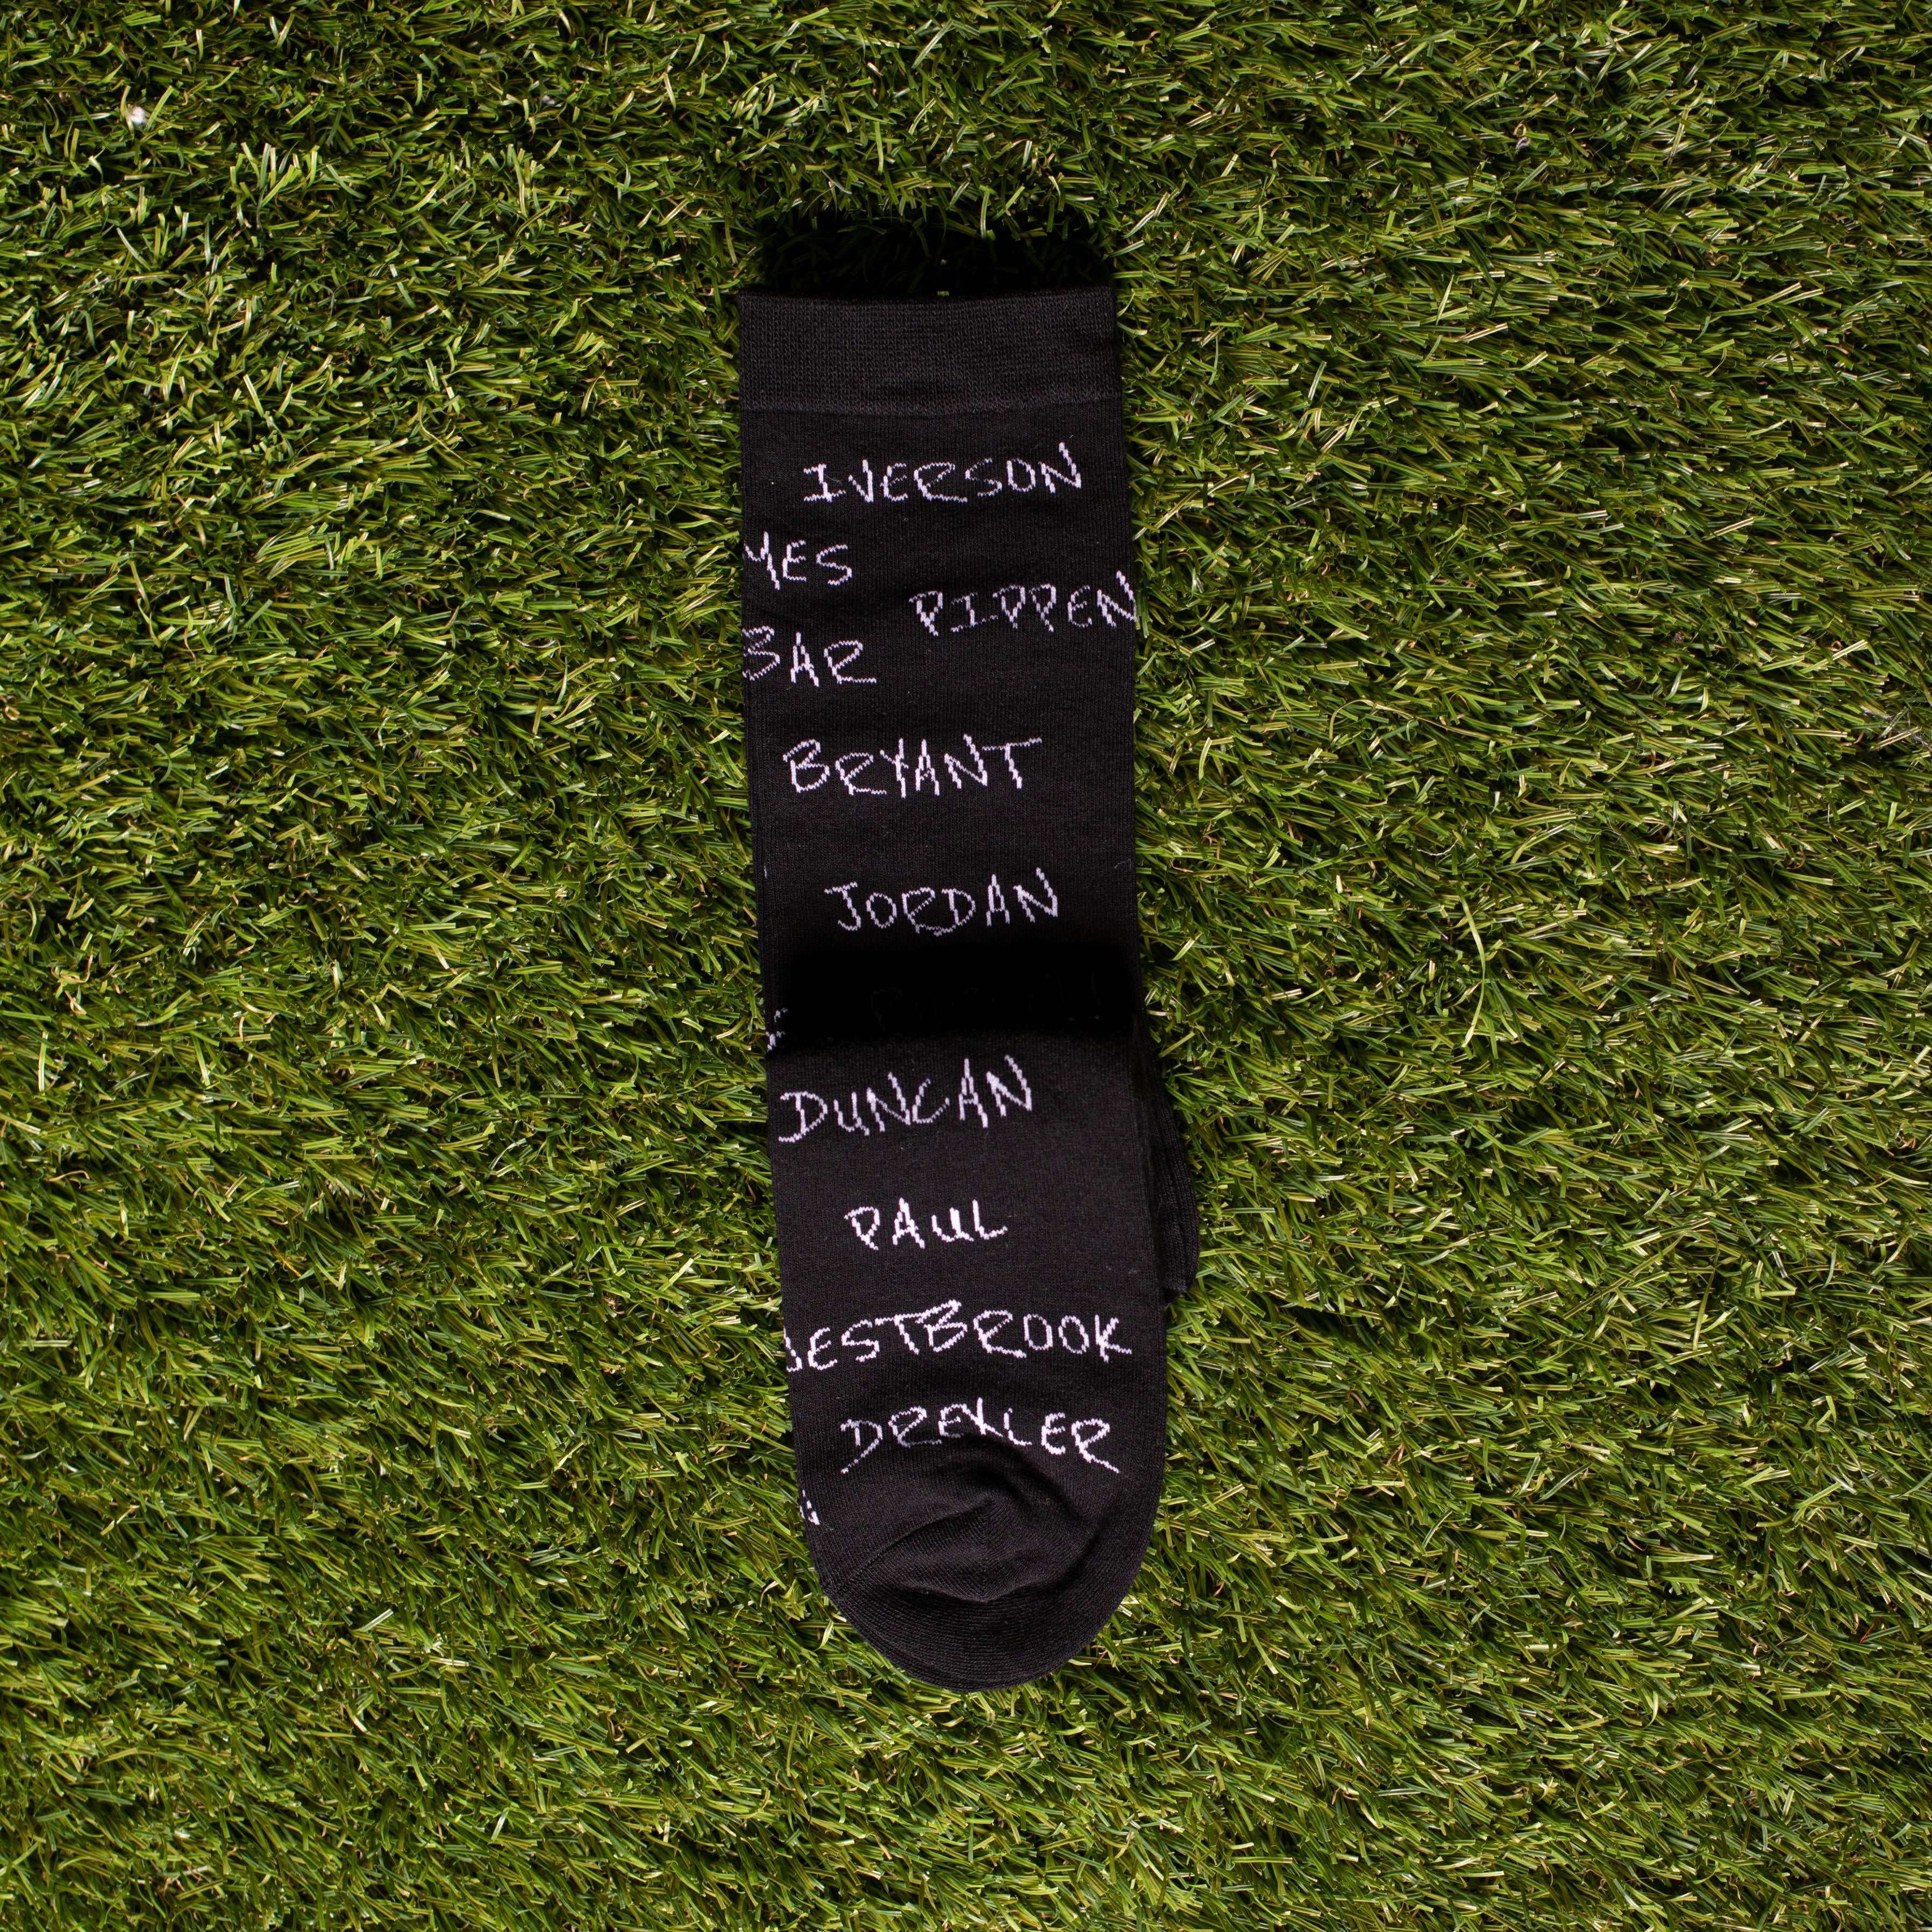 IVERSON
MES
PIPPEN
BAR
BRYANT
JORDAN
DUNCAN
PAUL
WESTBROOK
DREXLER